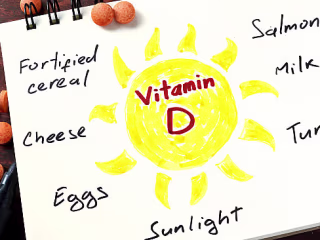 Salmon
Fortified
cereal
Milk
Vitamin
D
Cheese
Eggs
Sunlight